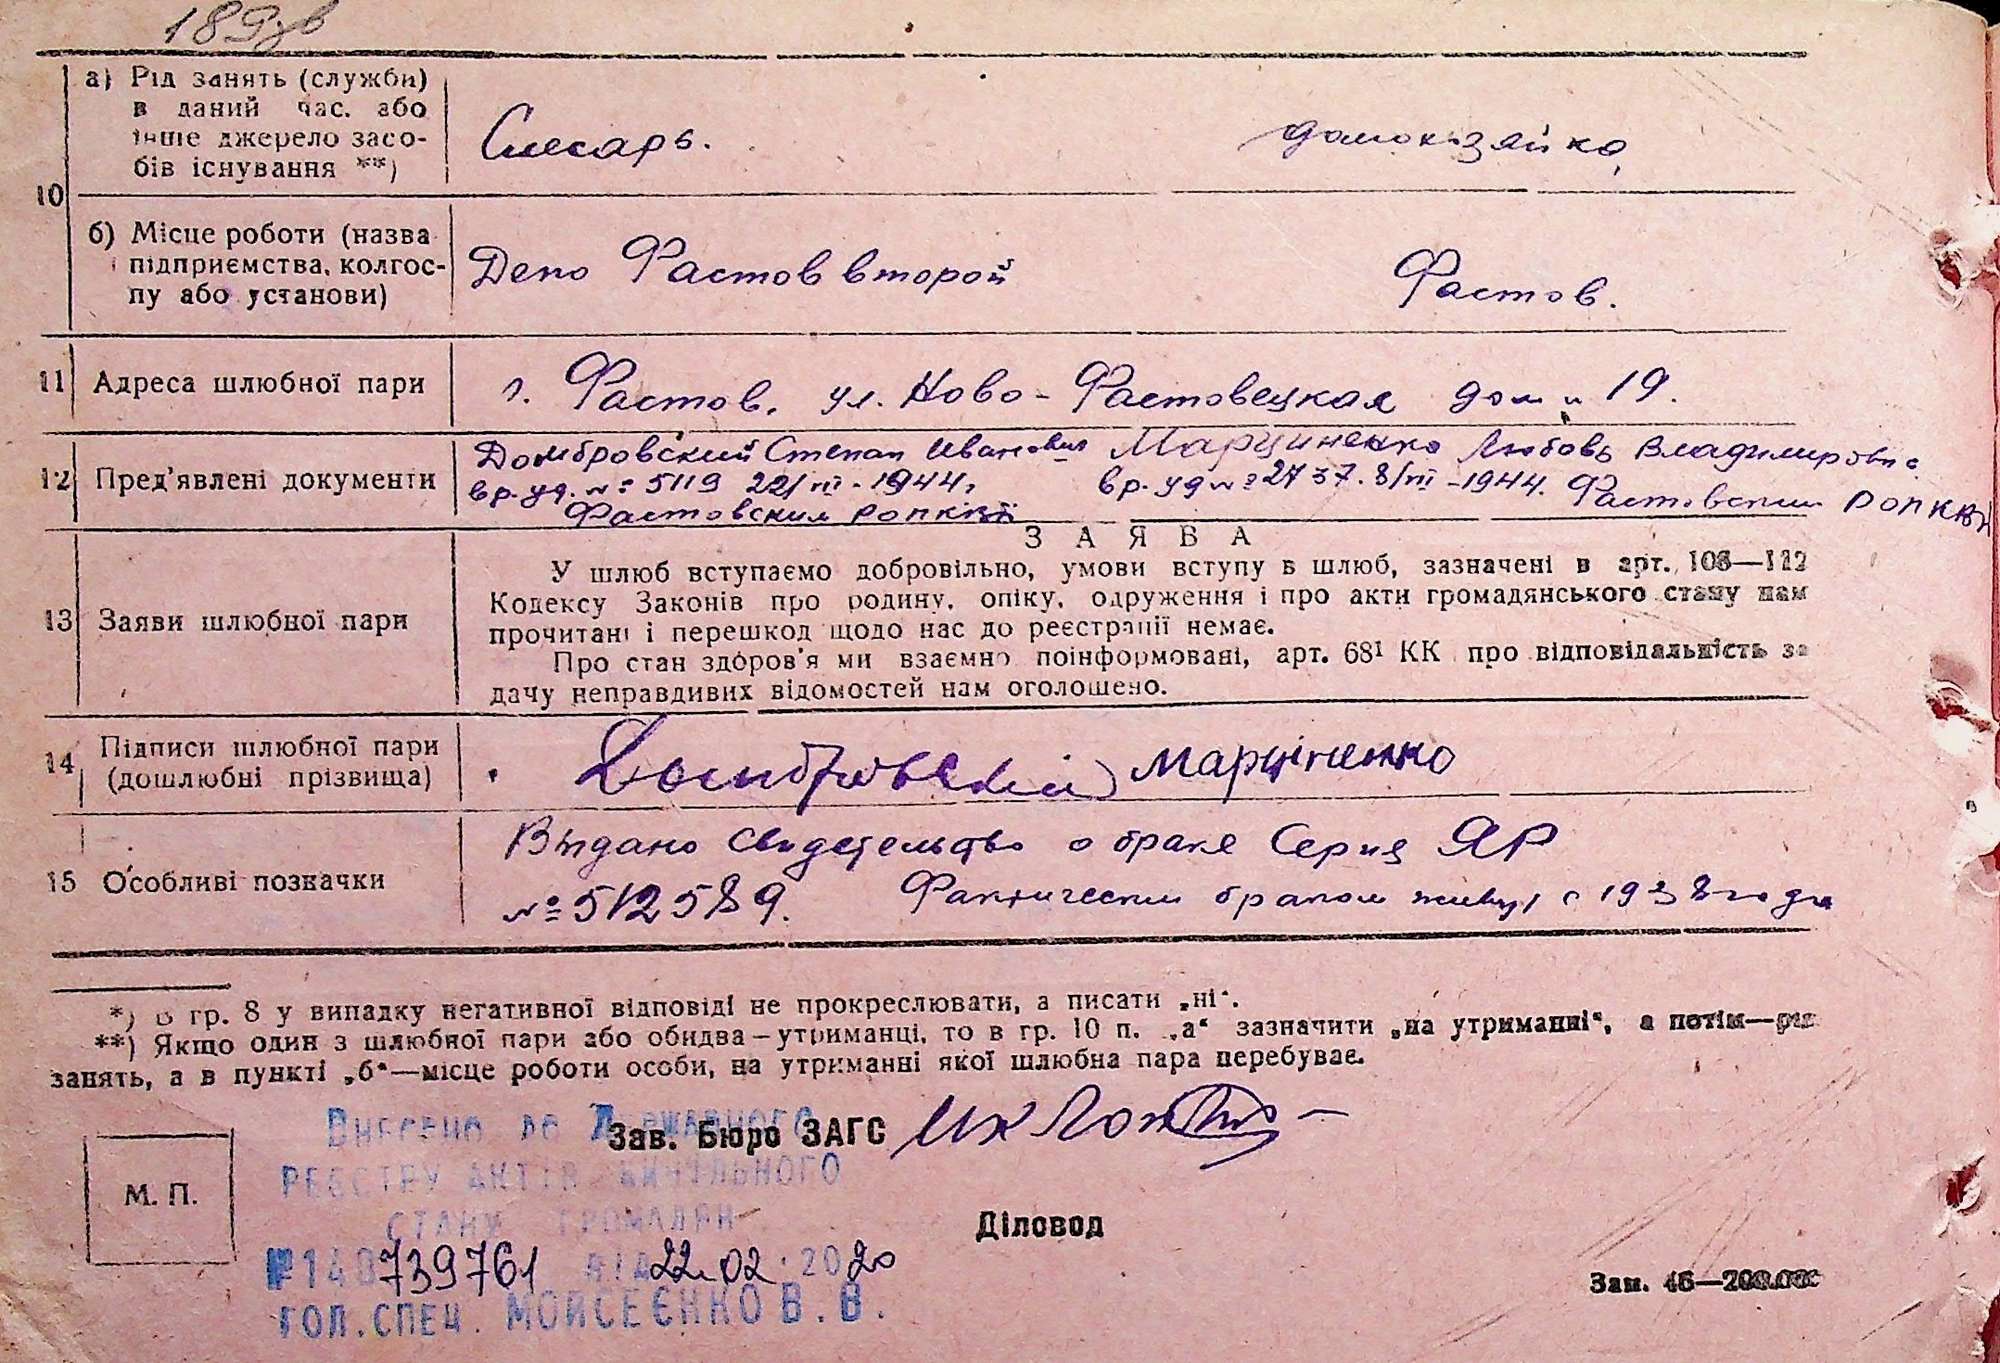 18
а) Рід занять (служби)
в даний час. або
інше джерело засо-
бів існування **)
Слесарь. домохозяйка
10
б) Місце роботи (назва
підприємства, колгос-
пу або установи)
Депо Фастов второй Фастов.
11 Адреса шлюбної пари г. Фастов. ул. Ново-Фастовецкая дом № 19.
12 Пред'явлені документи
Домбровский Степан Иванович Марциненко Любовь Владимировна
вр. уд. № 5119 22/III-1944, вр. уд № 2737. 8/III-1944. Фастовским РОПКВД
Фастовским РОПКВД
ЗАЯВА
13 Заяви шлюбної пари
У шлюб вступаємо добровільно, умови вступу в шлюб, зазначені в арт. 108—112
Кодексу Законів про родину, опіку, одруження і про акти громадянського стану нам
прочитані і перешкод щодо нас до реєстрації немає.
Про стан здоров'я ми взаємно поінформовані, арт. 68¹ КК про відповідальність за
дачу неправдивих відомостей нам оголошено.
14 Підписи шлюбної пари
(дошлюбні прізвища)
Домбровский Марціненко
15 Особливі позначки
Выдано свидетельство о браке Серия ЯР
№ 512589. Фактическим браком живут с 1938 года
*) В гр. 8 у випадку негативної відповіді не прокреслювати, а писати „ні“.
**) Якщо один з шлюбної пари або обидва—утриманці, то в гр. 10 п. „а“ зазначити „на утриманні“, а потім—рід
занять, а в пункті „б“—місце роботи особи, на утриманні якої шлюбна пара перебуває.
Внесено до Державного
Зав. Бюро ЗАГС
реєстру актів цивільного
стану громадян
М. П.
Діловод
№ 140739761 від 22.02.2020
гол.спец. Моисеєнко В.В.
Зам. 46—200.000